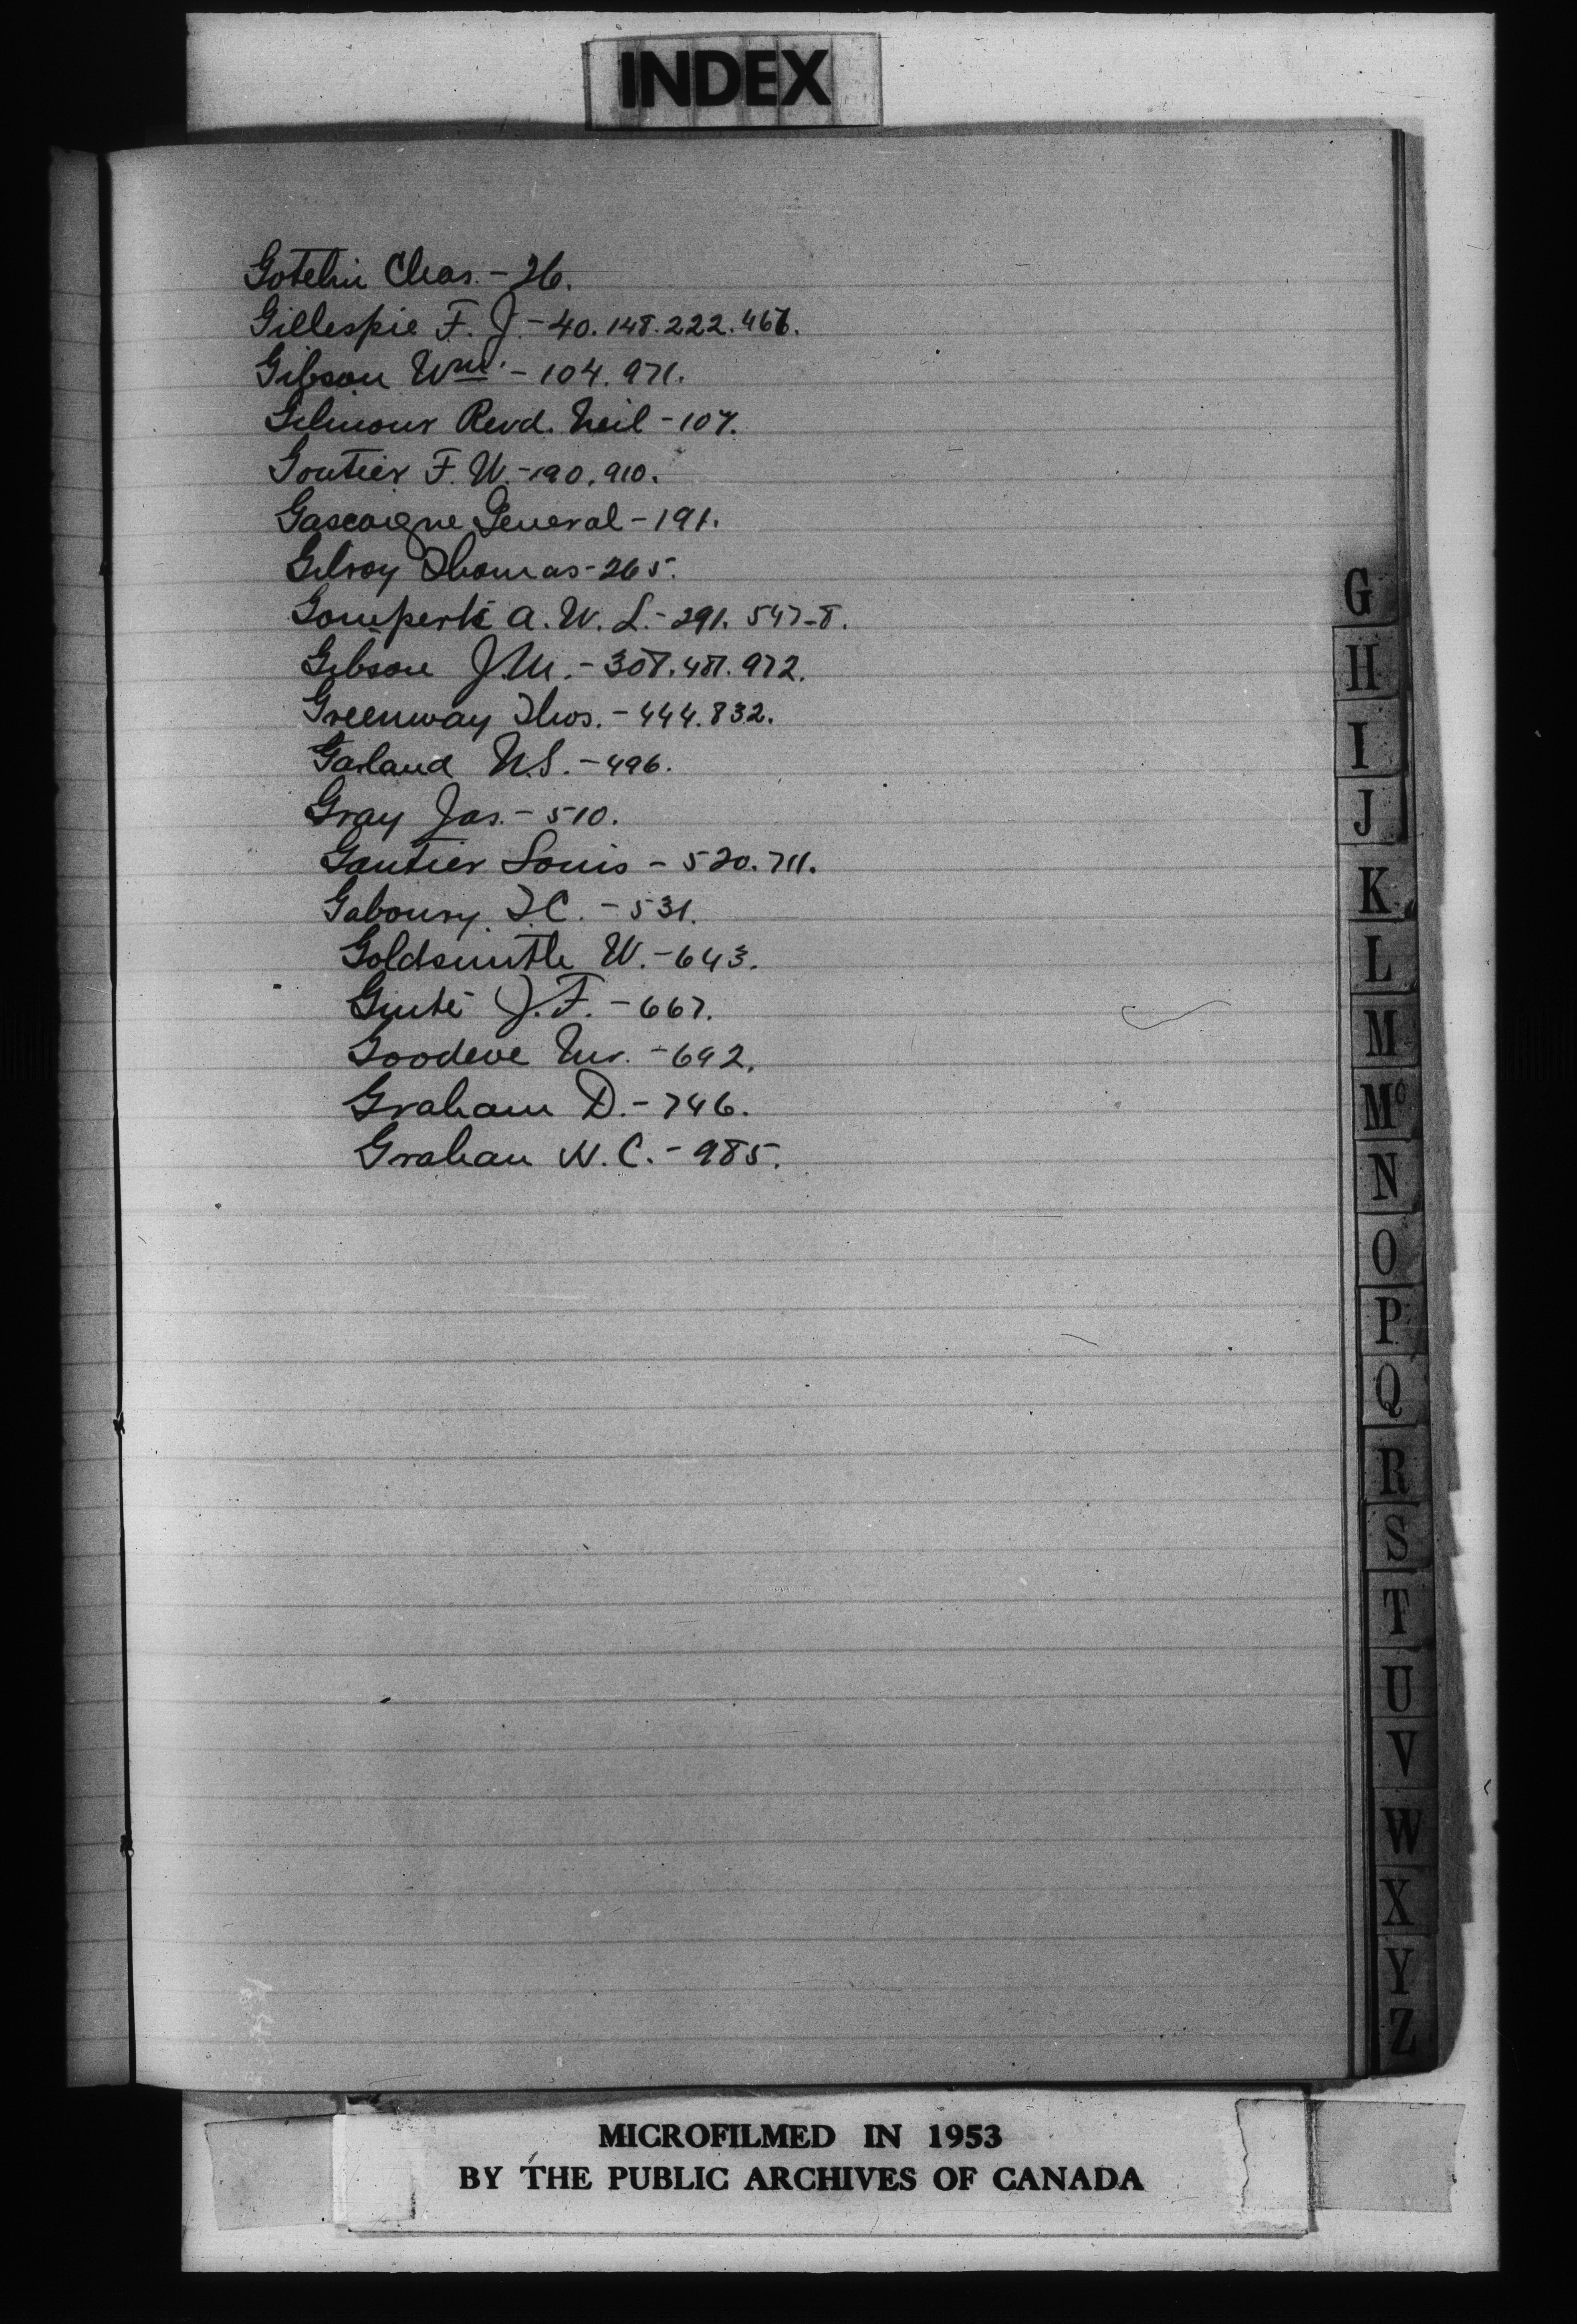 INDEX
Gotelin Chas. - 26.
Gillespie F. J. - 40. 148. 222. 467.
Gibson Wm. - 104. 971.
Gilmour Revd. Neil - 107.
Goutier F. W. - 190. 910.
Gascoigne General - 191.
Gilroy Thomas - 265.
A. W. L. - 291. 547-8.
Gibson J. M. - 308. 481. 972.
Greenway Thos. - 444. 832.
Garland N. S. - 496.
Gray Jas. - 510.
Gautier Louis - 520. 711.
Gaboury T. C. - 531.
Goldsmith W. - 643.
Guité J. F. - 667.
Goodeve Mr. - 692.
Graham D. - 746.
Graham W. C. - 985.
G
H
I
J
K
L
M
Mc
N
O
P
Q
R
S
T
U
V
W
X
Y
Z
MICROFILMED IN 1953
BY THE PUBLIC ARCHIVES OF CANADA